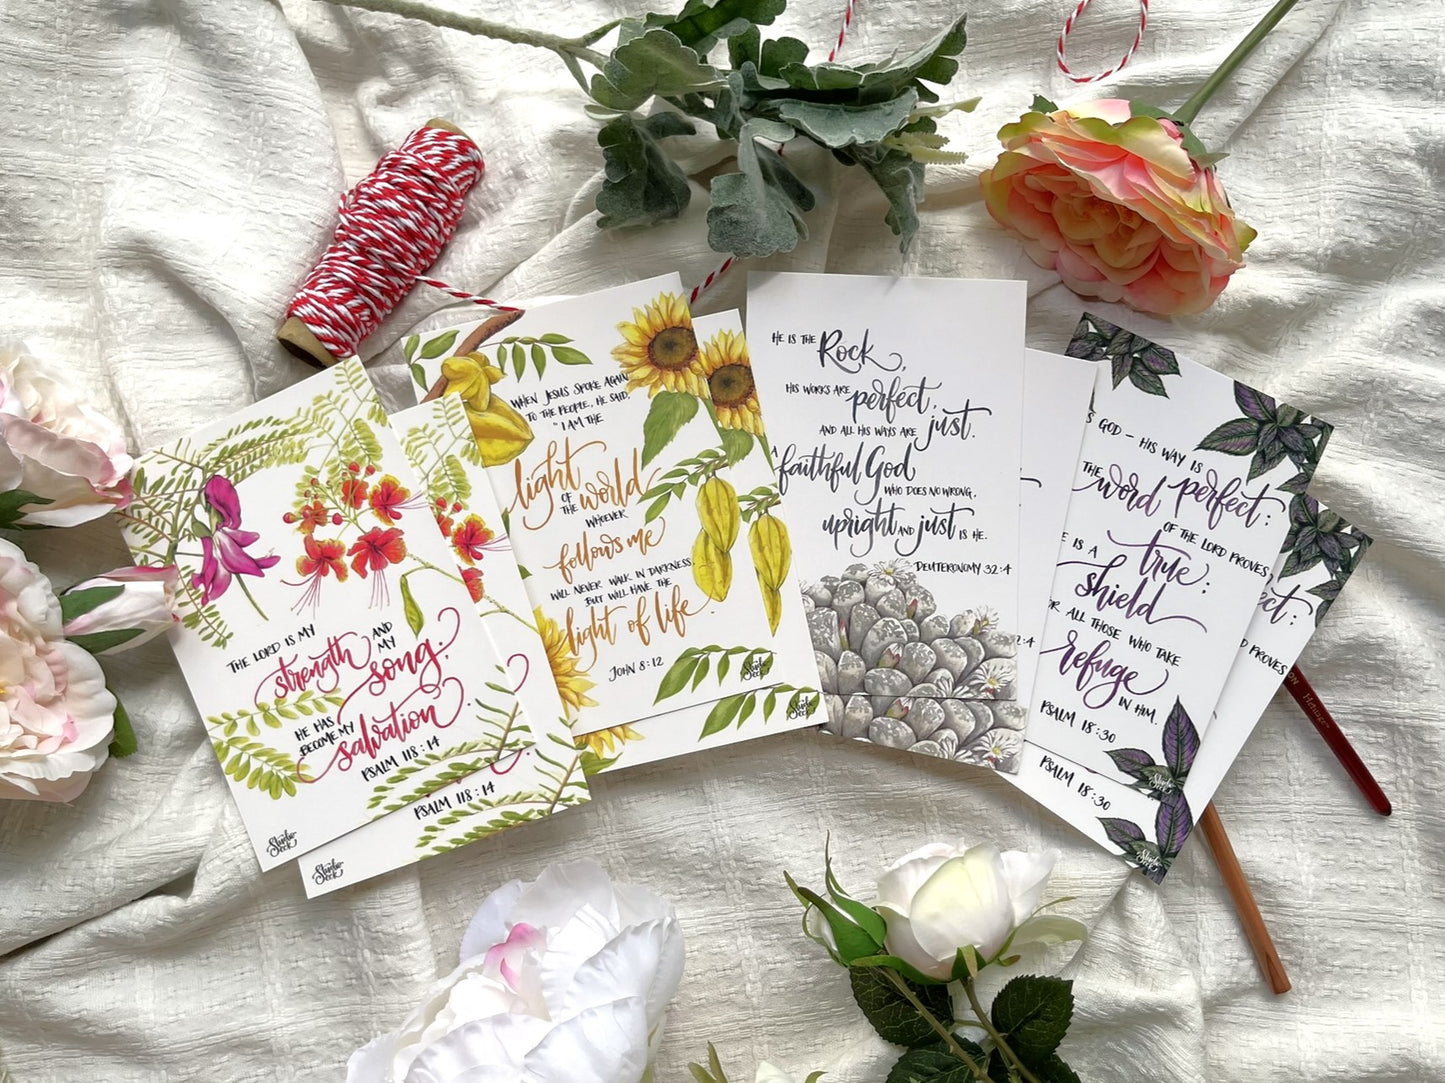 THE LORD IS MY
strength AND MY
song.
HE HAS BECOME MY
salvation.
PSALM 118:14
Studio
PSALM 118:14
Studio
WHEN JESUS SPOKE AGAIN
TO THE PEOPLE, HE SAID,
"I AM THE
light
OF THE world
WHOEVER
follows me
WILL NEVER WALK IN DARKNESS,
BUT WILL HAVE THE
light of life."
JOHN 8:12
Studio
Studio
HE IS THE Rock,
HIS WORKS ARE perfect,
AND ALL HIS WAYS ARE just.
A faithful God
WHO DOES NO WRONG,
upright AND just IS HE.
DEUTERONOMY 32:4
32:4
GOD – HIS WAY IS
perfect:
THE word OF THE LORD PROVES
true:
HE IS A
shield
FOR ALL THOSE WHO TAKE
refuge IN HIM.
PSALM 18:30
Studio
perfect:
PROVES
PSALM 18:30
Studio